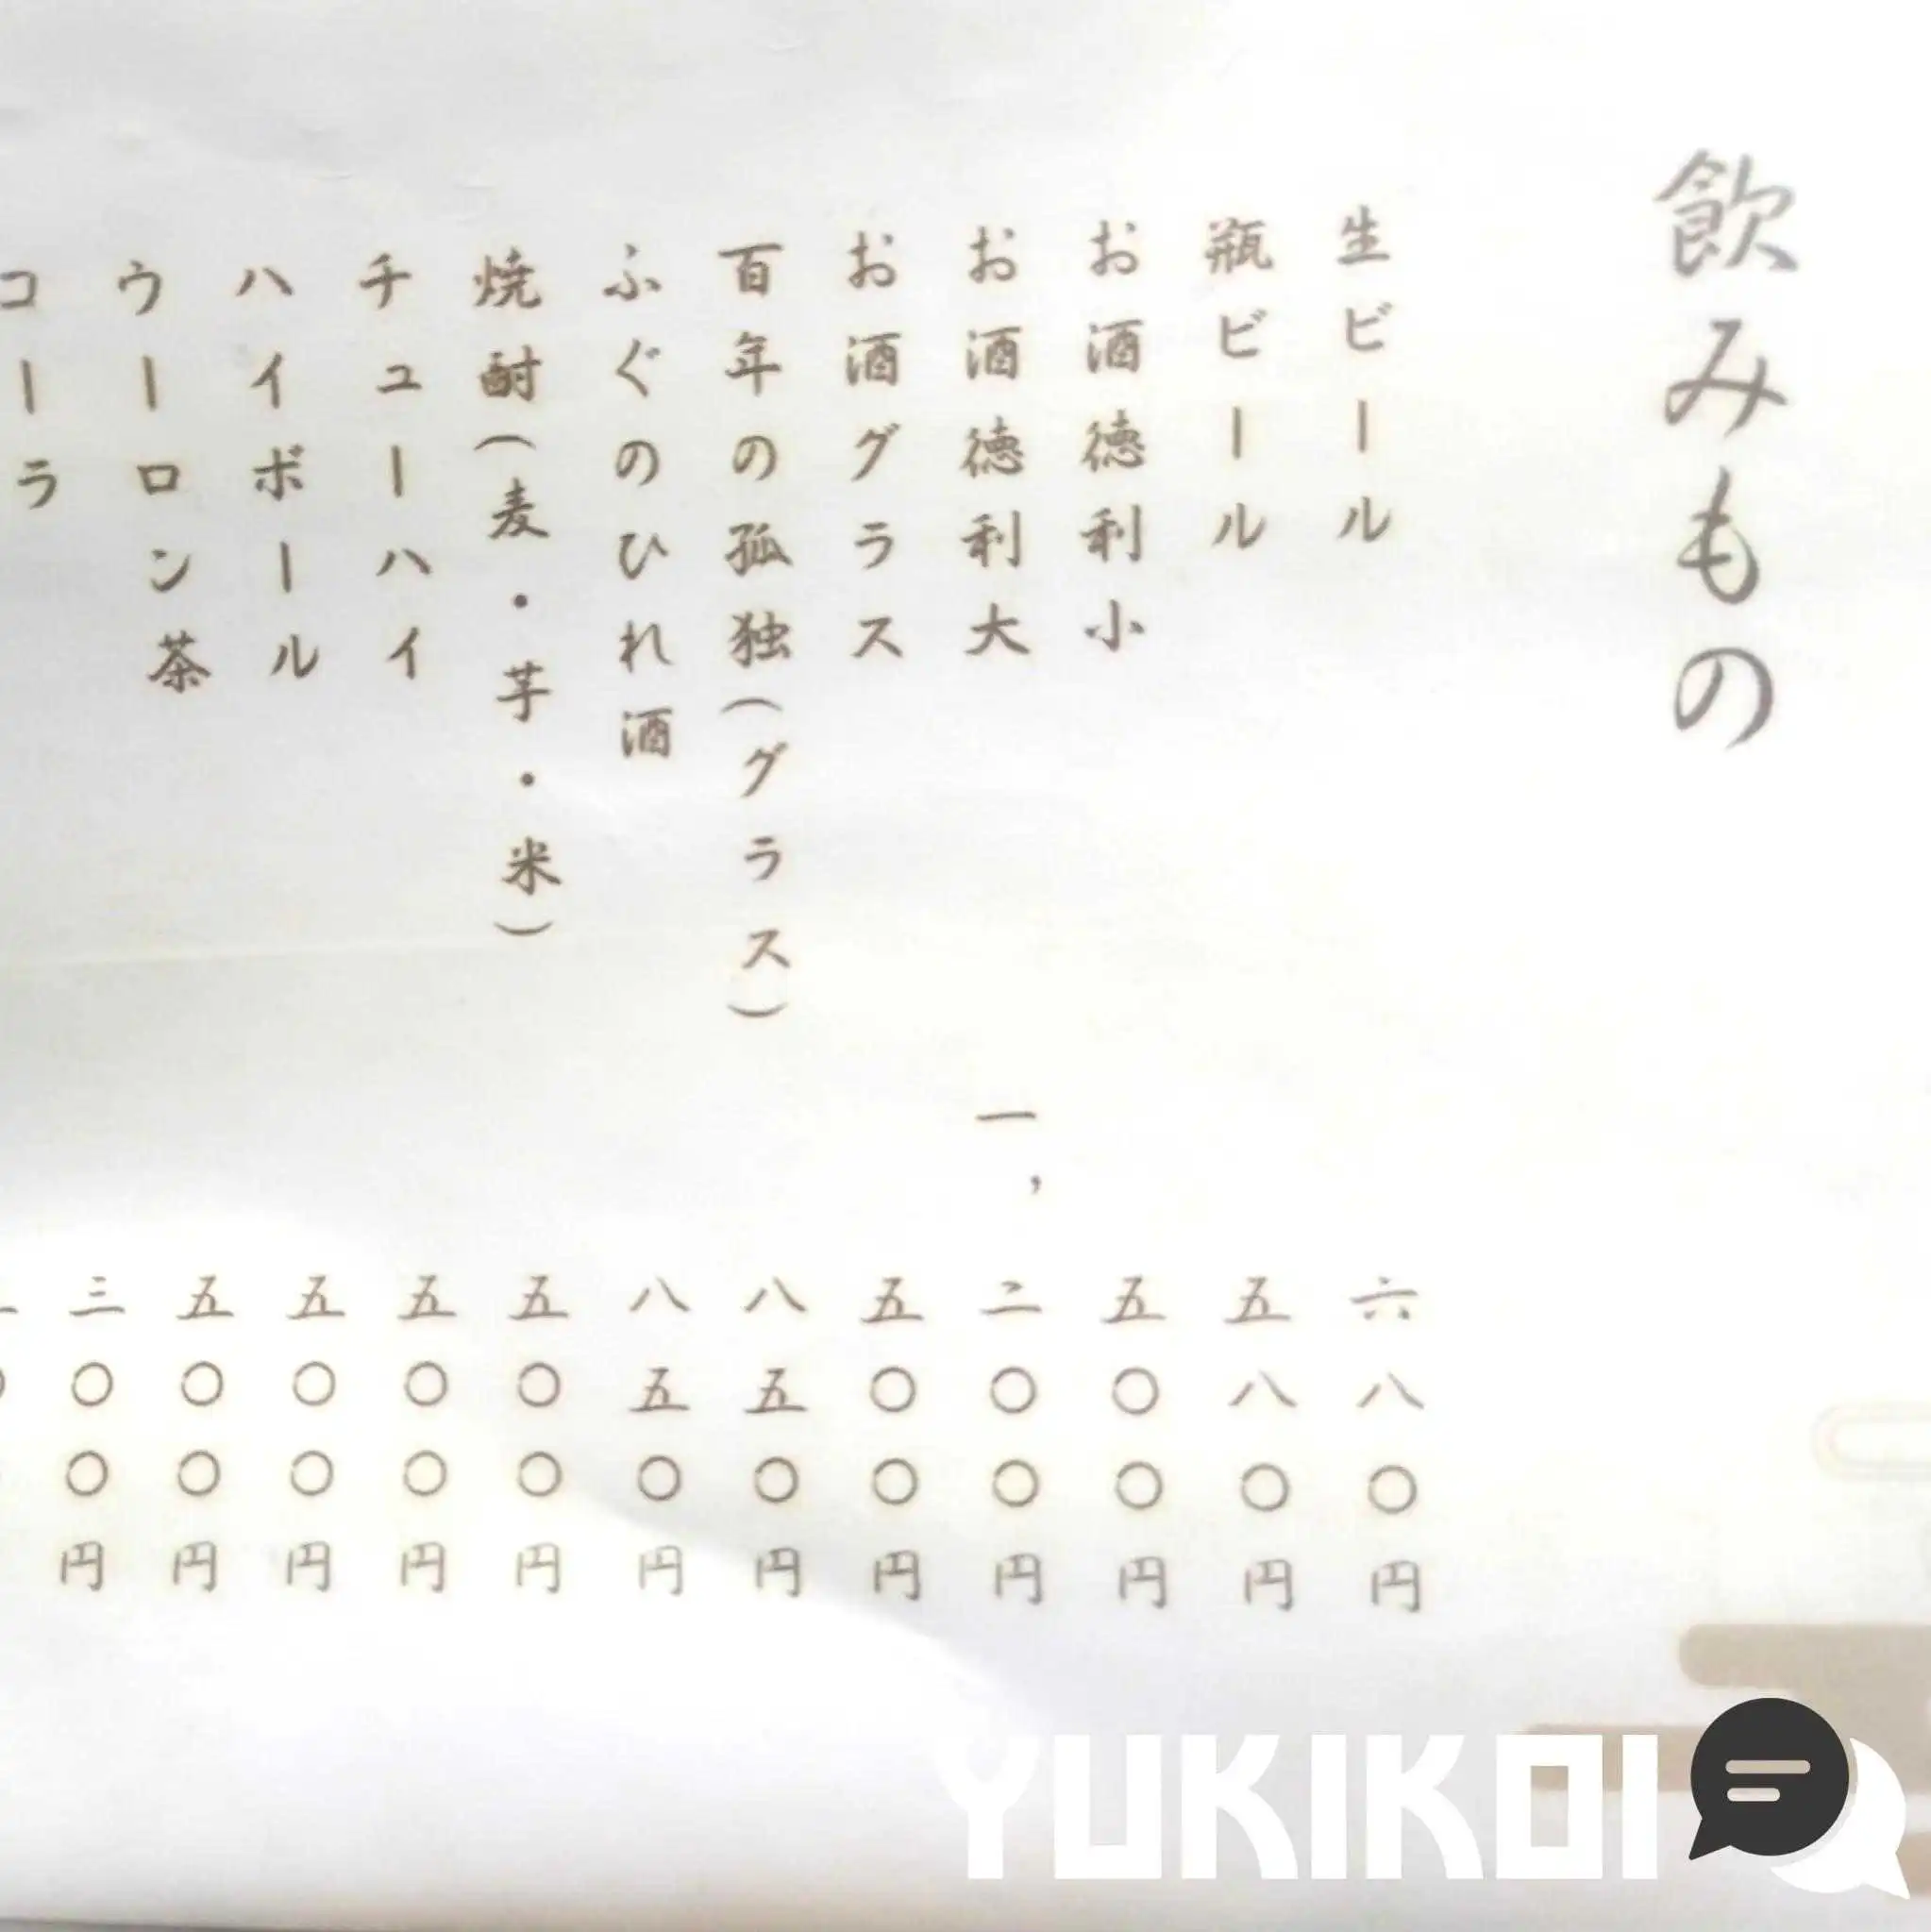 飲みもの
生ビール 六八〇円
瓶ビール 五八〇円
お酒徳利小 五〇〇円
お酒徳利大 一,二〇〇円
お酒グラス 五〇〇円
百年の孤独(グラス) 八五〇円
ふぐのひれ酒 八五〇円
焼酎(麦・芋・米) 五〇〇円
チューハイ 五〇〇円
ハイボール 五〇〇円
ウーロン茶 五〇〇円
コーラ 三〇〇円
YUKIKOI